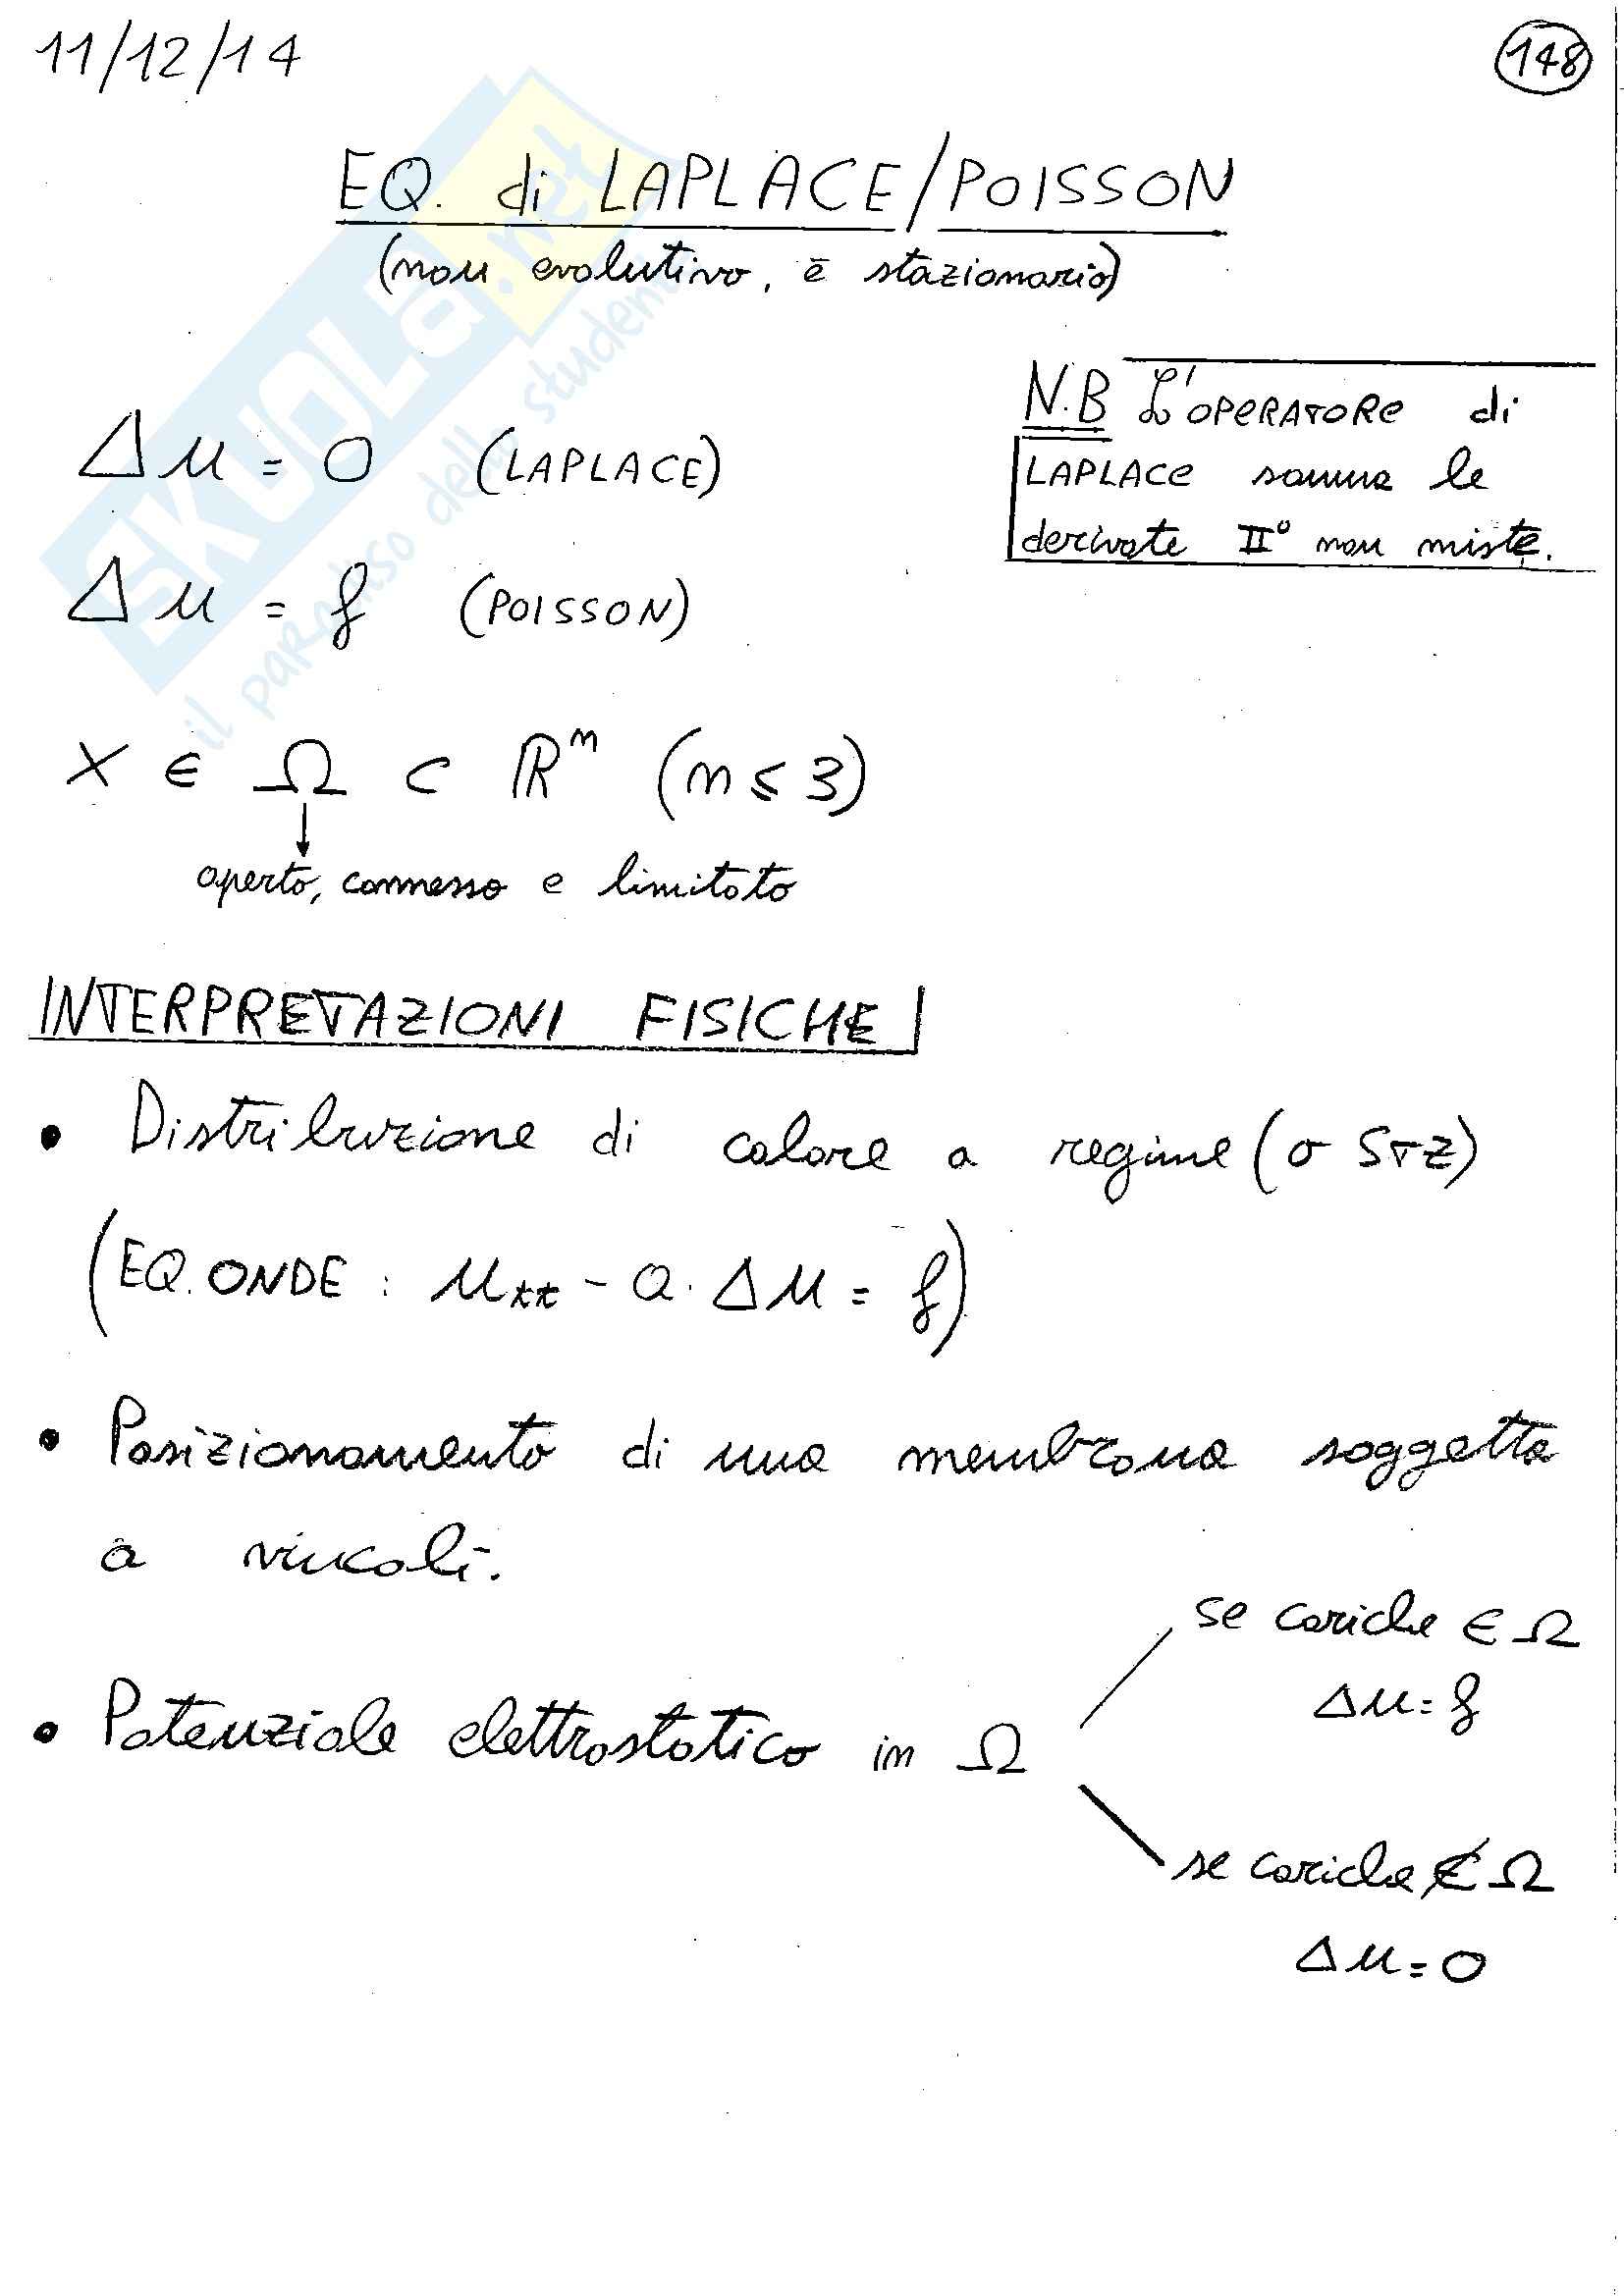 11/12/14
148
EQ. di LAPLACE/POISSON
(non evolutivo, è stazionario)
N.B L'OPERATORE di
LAPLACE somma le
derivate II° non miste.
Δu = 0 (LAPLACE)
Δu = f (POISSON)
x ∈ Ω ⊂ ℝⁿ (n ≤ 3)
↓
aperto, connesso e limitato
INTERPRETAZIONI FISICHE
• Distribuzione di calore a regime (o STZ)
(EQ. ONDE : u_tt - a · Δu = f)
• Posizionamento di una membrana soggetta
a vincoli.
• Potenziale elettrostatico in Ω
se cariche ∈ Ω
Δu = f
se cariche ∉ Ω
Δu = 0
SKUOLA.net
il paradiso dello studente